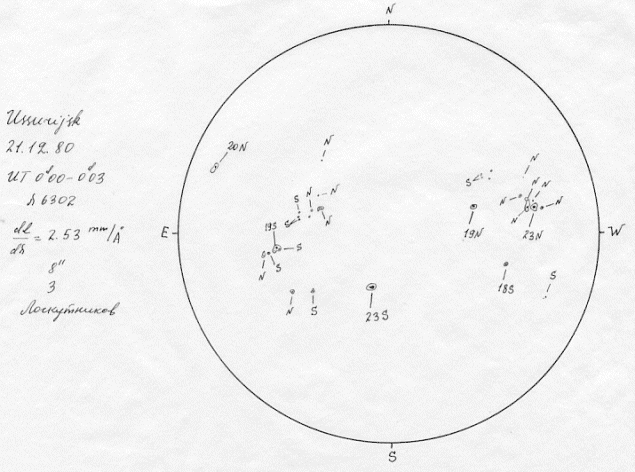 N
Ussurijsk
21.12.80
UT 0ᵈ00-0ᵈ03
λ 6302
dl/dλ = 2.53 mm/Å
8"
3
Лоскутников
20N
N
N
S
N
N
S
N
S
N
N
N
N
N
E
19S
S
N
19N
23N
W
S
S
N
18S
S
N
S
23S
S